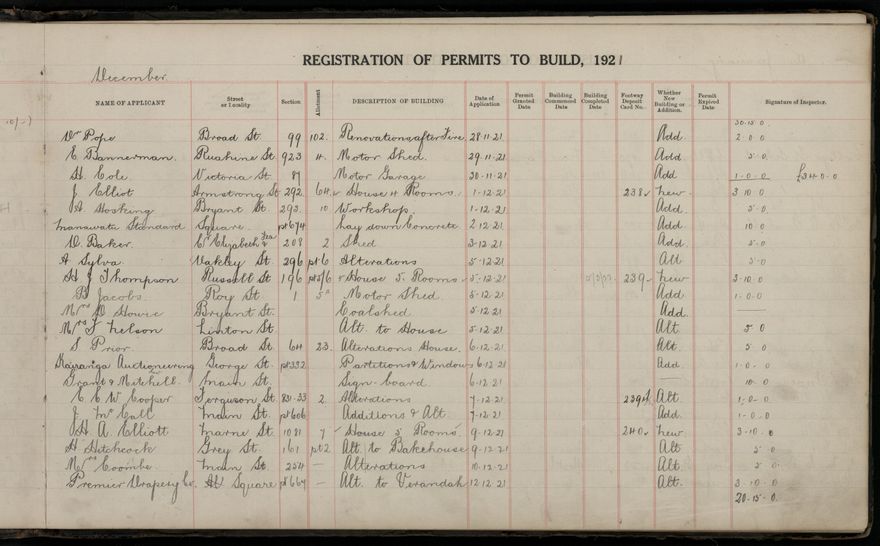 REGISTRATION OF PERMITS TO BUILD, 1921
December
NAME OF APPLICANT Street or Locality Section Allotment DESCRIPTION OF BUILDING Date of Application Permit Granted Date Building Commenced Date Building Completed Date Footway Deposit Card No. Whether New Building or Addition. Permit Expired Date Signature of Inspector.
30.15.0
Wm Pope Broad St. 99 102. Renovations after Fire 28.11.21 Add 2.0.0
E. Bannerman. Ruahine St. 923 4. Motor Shed. 29.11.21 Add 5.0
H. Cole. Victoria St. 87 Motor Garage 30.11.21 Add 1.0.0 £34.0.0
J. Elliot Armstrong St. 292. 64. House 4 Rooms. 1.12.21 238 New 3.10.0
A. Hosking Bryant St. 293. 10 Workshop. 1.12.21 Add. 5.0
Manawatu Standard Square. pt 674 Lay down Concrete 2.12.21 Add. 10.0
W. Baker. Elizabeth 208 2 Shed 3.12.21 Add. 5.0
A Sylva. Oakley St. 296 pt 6 Alterations 5.12.21 Alt 5.0
H J Thompson Russell St. 196 House 5 Rooms 5.12.21 239 New 3.10.0
B Jacobs. Roy St. 1 Motor Shed. 5.12.21 Add. 1.0.0
Mrs D Howie Bryant St. Coalshed 5.12.21 Add.
Mrs J Nelson Linton St. Alt. to House 5.12.21 Alt. 5.0
S Prior Broad St. 64 23. Alterations House. 6.12.21 Alt. 5.0
Kairanga Auctioneering George St. pt 332 Partitions & Windows 6.12.21 Add. 1.0.0
Grant & Mitchell. Main St. Sign-board. 6.12.21 10.0
C E W Cooper Ferguson St. 831-33 2. Alterations 7.12.21 239A Alt. 1.0.0
J McCall Main St. pt 606 Additions & Alt. 7.12.21 Add. 1.0.0
H A. Elliott Marne St. 1081 7 House 5 Rooms 9.12.21 240 New 3.10.0
H Hitchcock Grey St. 161 pt 2 Alt. to Bakehouse 9.12.21 Alt. 5.0
Mrs Coombe. Main St. 254 — Alterations 10.12.21 Alt. 5.0
Premier Drapery Co. Square pt 664 — Alt. to Verandah 12.12.21 Alt. 3.10.0
20.15.0.